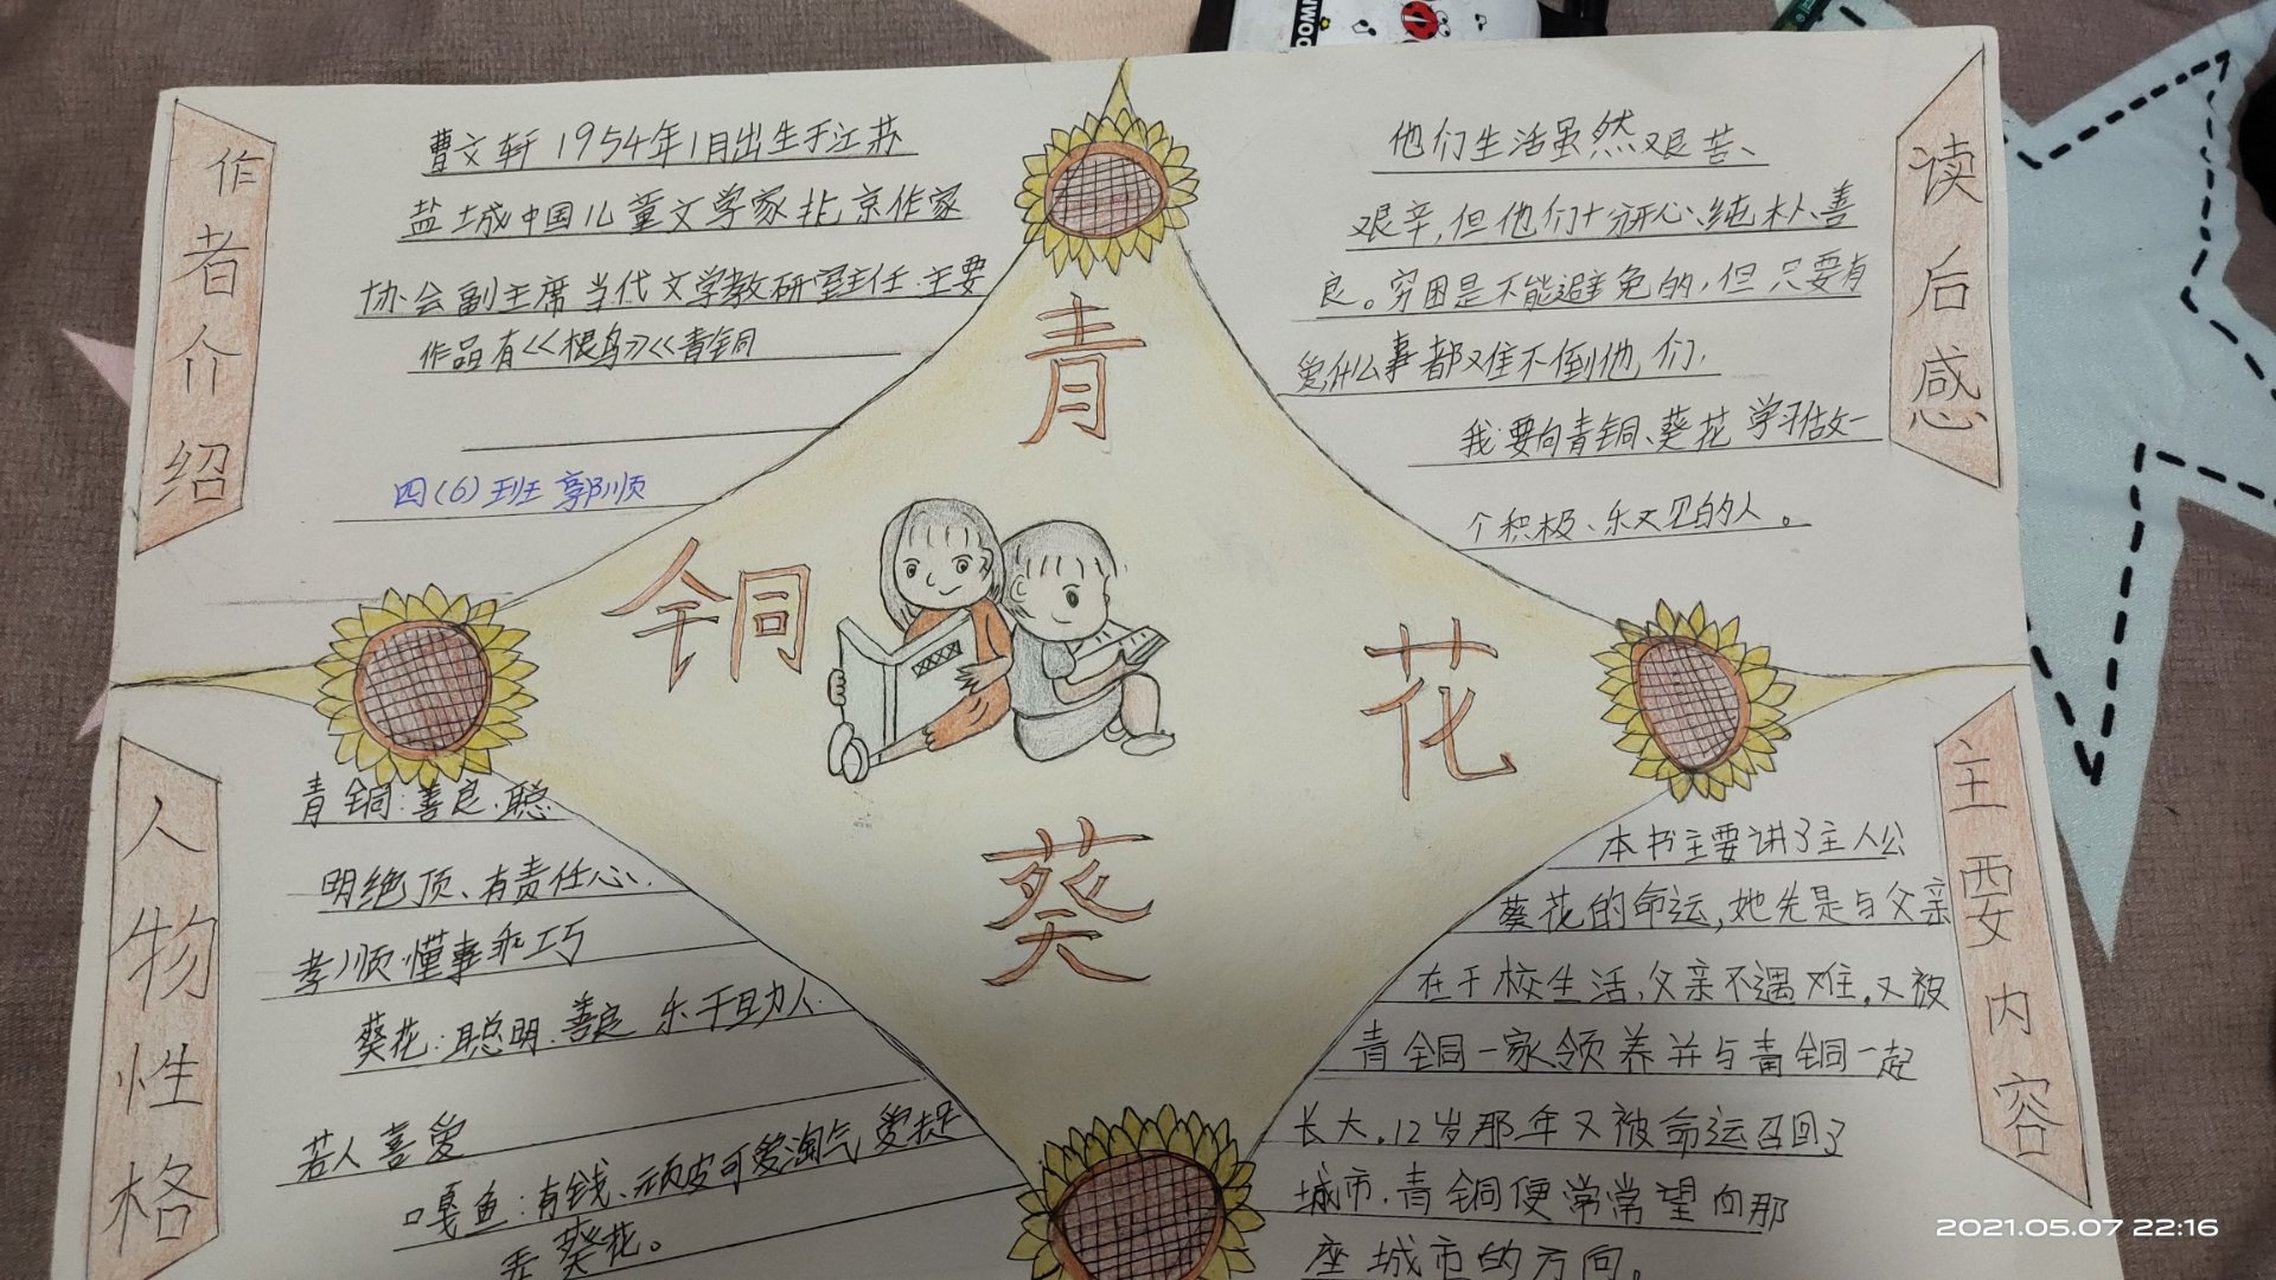 作者介绍
曹文轩1954年1月出生于江苏
盐城中国儿童文学家北京作家
协会副主席当代文学教研室主任.主要
作品有<<根鸟>><<青铜
四(6)班郭顺
读后感
他们生活虽然艰苦、
艰辛,但他们十分开心、纯朴、善
良。穷困是不能避免的,但只要有
爱,什么事都难不倒他们.
我要向青铜、葵花学习做一
个积极、乐观的人。
青
铜
葵
花
人物性格
青铜:善良.聪
明绝顶、有责任心.
孝顺.懂事乖巧
葵花:聪明.善良 乐于助人.
若人喜爱
嘎鱼:有钱、顽皮可爱淘气 爱捉
弄葵花。
主要内容
本书主要讲了主人公
葵花的命运,她先是与父亲
在干校生活,父亲不遇难.又被
青铜一家领养并与青铜一起
长大.12岁那年又被命运召回了
城市.青铜便常常望向那
座城市的方向。
IWOO
2021.05.07 22:16